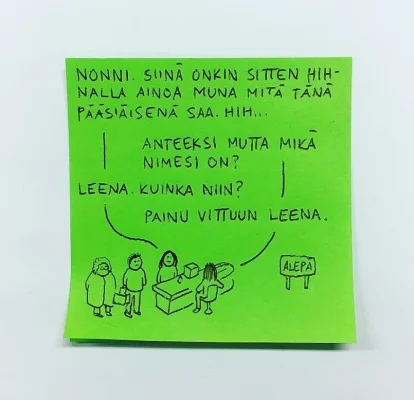 NONNI. SIINÄ ONKIN SITTEN HIH-
NALLA AINOA MUNA MITÄ TÄNÄ
PÄÄSIÄISENÄ SAA. HIH...
ANTEEKSI MUTTA MIKÄ
NIMESI ON?
LEENA. KUINKA NIIN?
PAINU VITTUUN LEENA.
ALEPA